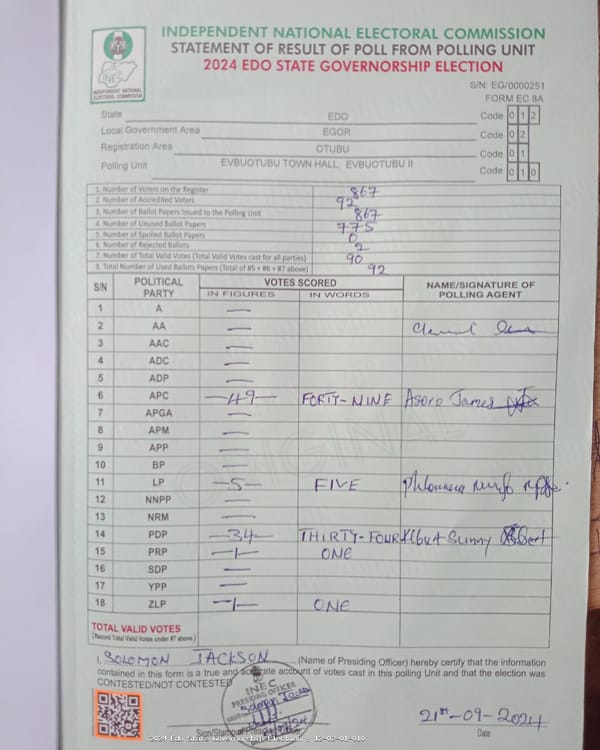 INDEPENDENT NATIONAL ELECTORAL COMMISSION
STATEMENT OF RESULT OF POLL FROM POLLING UNIT
2024 EDO STATE GOVERNORSHIP ELECTION
INEC
INDEPENDENT NATIONAL ELECTORAL COMMISSION
S/N: EG/0000251
FORM EC 8A
State EDO Code 0 1 2
Local Government Area EGOR Code 0 2
Registration Area OTUBU Code 0 1
Polling Unit EVBUOTUBU TOWN HALL, EVBUOTUBU II Code 0 1 0
1. Number of Voters on the Register 867
2. Number of Accredited Voters 92
3. Number of Ballot Papers Issued to the Polling Unit 867
4. Number of Unused Ballot Papers 775
5. Number of Spoiled Ballot Papers 0
6. Number of Rejected Ballots 2
7. Number of Total Valid Votes (Total Valid Votes cast for all parties) 90
8. Total Number of Used Ballots Papers (Total of #5 + #6 + #7 above) 92
S/N POLITICAL PARTY VOTES SCORED NAME/SIGNATURE OF POLLING AGENT
IN FIGURES IN WORDS
1 A —
2 AA —
3 AAC —
4 ADC —
5 ADP —
6 APC —49— FORTY-NINE Asoro James
7 APGA —
8 APM —
9 APP —
10 BP —
11 LP —5— FIVE
12 NNPP —
13 NRM —
14 PDP —34— THIRTY-FOUR Sunny
15 PRP —1— ONE
16 SDP —
17 YPP —
18 ZLP —1— ONE
TOTAL VALID VOTES
(Record Total Valid Votes under #7 above)
I, SOLOMON JACKSON (Name of Presiding Officer) hereby certify that the information
contained in this form is a true and accurate account of votes cast in this polling Unit and that the election was
CONTESTED/NOT CONTESTED
INEC
PRESIDING OFFICER
21st-09-2024
Sign/Stamp of Date
2024 Edo State Governorship Election - 12-02-01-010